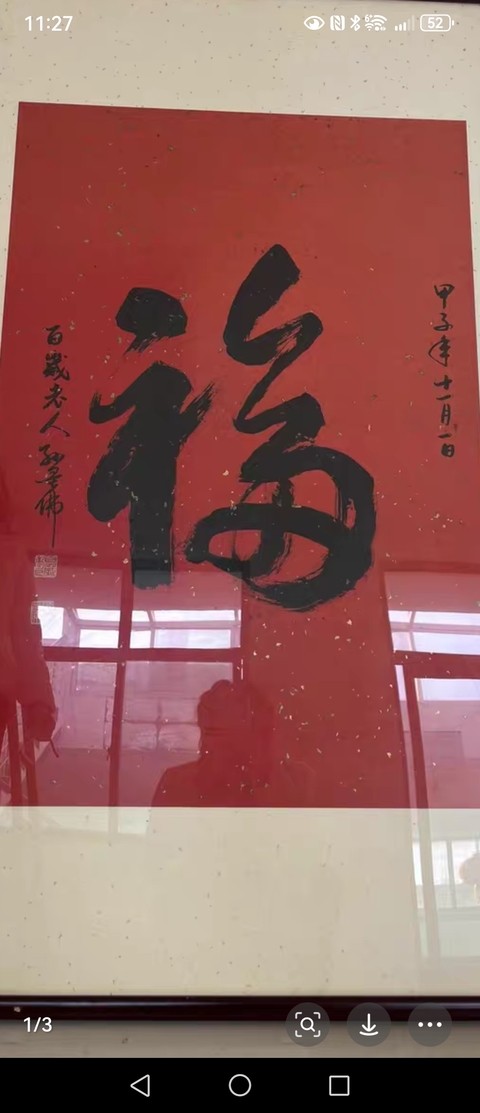 11:27
52
福
甲子年十一月一日
百歲老人孙墨佛
1/3